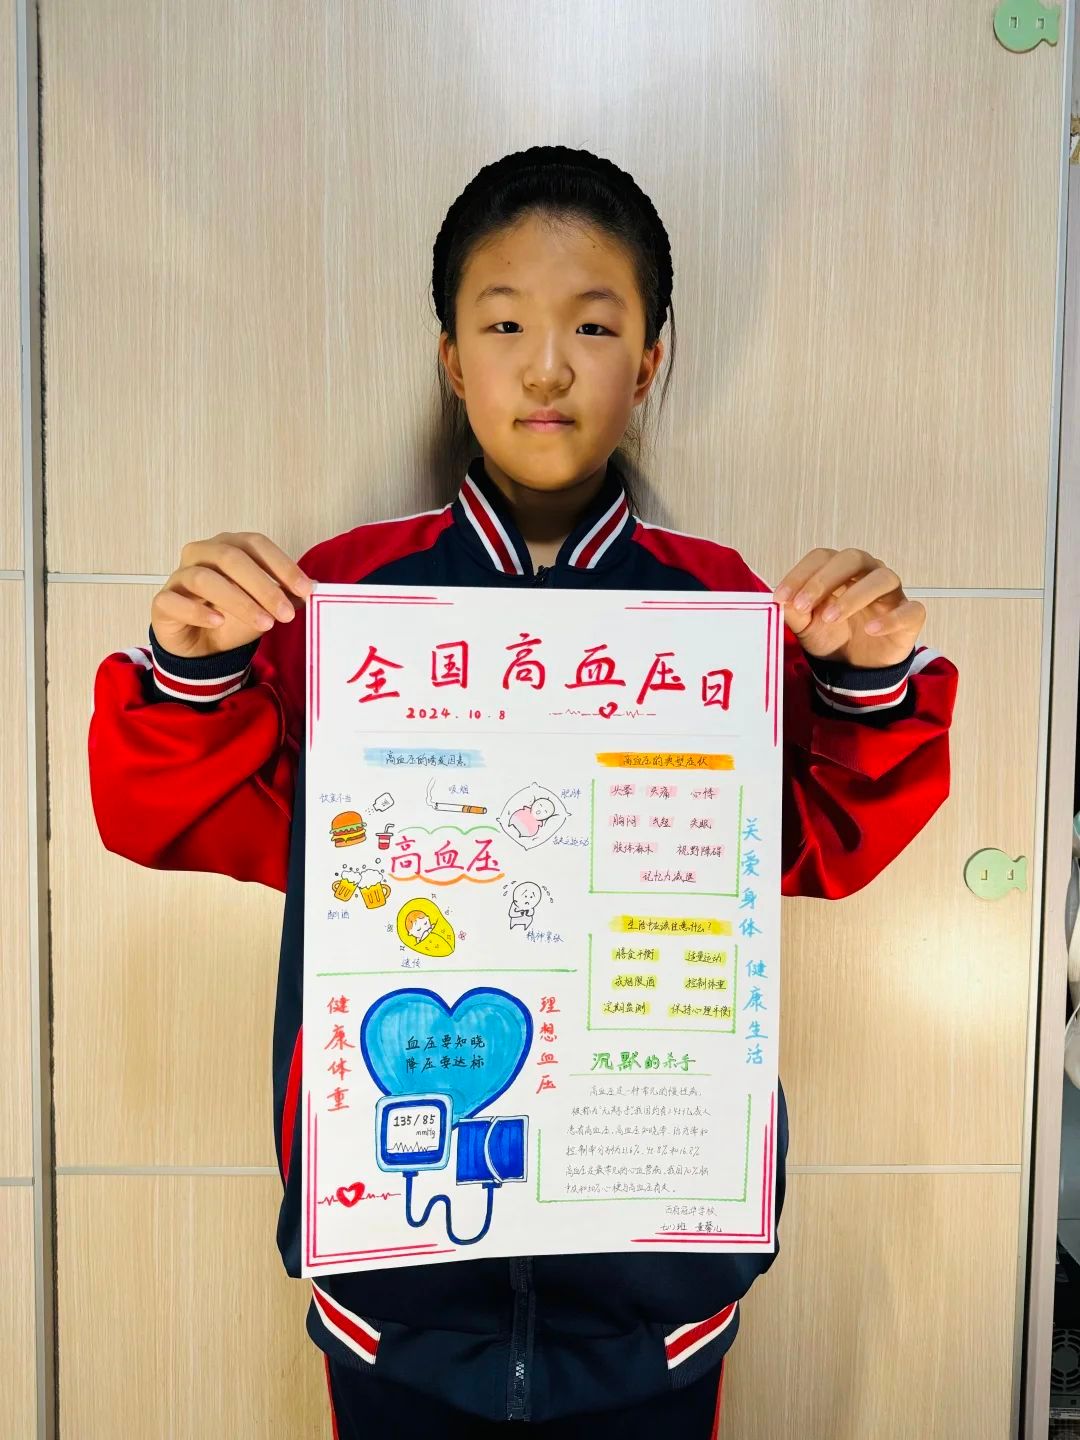 全国高血压日
2024.10.8
高血压的诱发因素
饮食不当
吸烟
肥胖
缺乏运动
高血压
酗酒
遗传
精神紧张
高血压的典型症状
头晕 头痛 心悸
胸闷 气短 失眠
肢体麻木 视野障碍
记忆力减退
生活中应该注意什么?
膳食平衡 适量运动
戒烟限酒 控制体重
定期监测 保持心理平衡
关爱身体 健康生活
健康体重
血压要知晓
降压要达标
理想血压
135/85
mmHg
沉默的杀手
高血压是一种常见的慢性病,
被称为"无声杀手"我国约有2.45亿成人
患有高血压,高血压知晓率、治疗率和
控制率分别为51.6%、45.8%和16.8%
高血压是最常见的心血管病,我国70%脑
卒中和50%心梗与高血压有关。
西府冠华学校
七(1)班